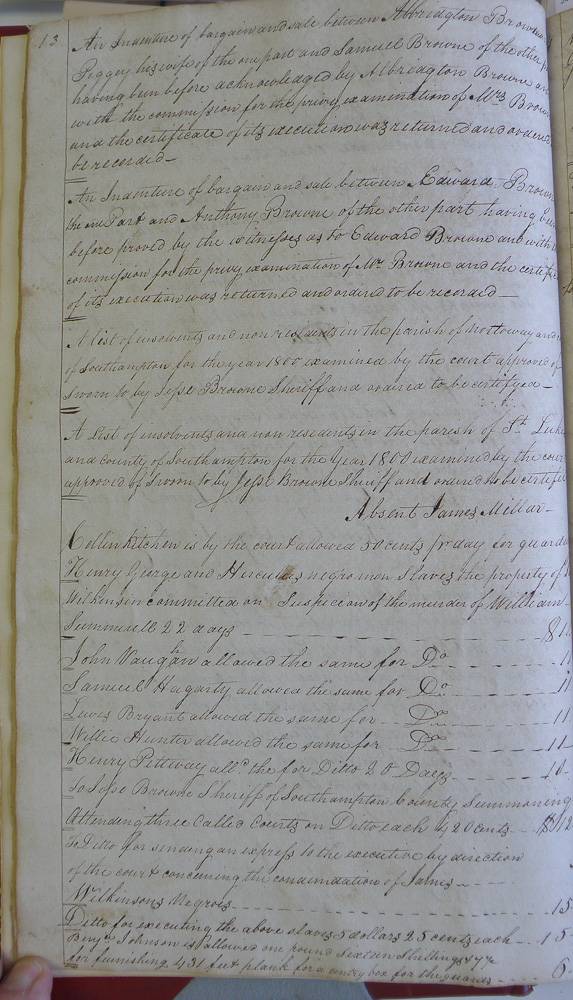 13.
An Indenture of bargain and sale between Albridgton Browne
Peggey his wife of the one part and Samuel Browne of the other
having been before acknowledged by Albridgton Browne and
with the commission for the privy examination of Mrs Brow
and the certificate of its execution was returned and ordered
be recorded—
An Indenture of bargain and sale between Edward Brown
the one Part and Anthony Browne of the other part having
before proved by the witnesses as to Edward Browne and with
commission for the privy examination of Mrs Browne and the certifi
of its execution was returned and ordered to be recorded—
A list of insolvents and non residents in the parish of Nottoway and
of Southampton for the year 1800 examined by the court approved of
Sworn to by Jesse Browne Sheriff and ordered to be certifyed—
A List of insolvents and non residents in the parish of St Luke
and county of Southampton for the Year 1800 examined by the cour
approved of Sworn to by Jesse Browne Sheriff and ordered to be certifi
Absent James Millar—
Collin Kitchen is by the court allowed 50 cents pr day for guard
Henry George and Hercules negro men Slaves the property of
Wilkinson committed on Suspicion of the murder of William
Summerell 22 days — $11
John Vaughan allowed the same for Do — 11
Samuel Hagarty allowed the same for Do — 11
Lewis Bryant allowed the same for — Do — 11
Willie Hunter allowed the same for — Do — 11
Henry Peteway alld the for Ditto 20 Days — 10
To Jesse Browne Sheriff of Southampton County Summoning
Attending three Called Courts on Ditto each 4 20 cents — $12
To Ditto for sending an express to the executive by direction
of the court concerning the condemnation of James
Wilkinsons Negroes — 15
Ditto for executing the above slaves 5 dollars 25 cents each — 15
Benja Johnson is allowed one pound Sixteen Shillings
for furnishing 431 feet plank for a centry box for the guards — 6